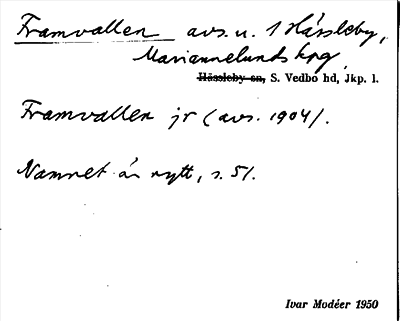 Framvallen avs. u. 1 Hässleby,
Mariannelunds kpg,
Hässleby sn, S. Vedbo hd, Jkp. l.
Framvallen jr (avs. 1904).
Namnet är nytt, s. 51.
Ivar Modéer 1950